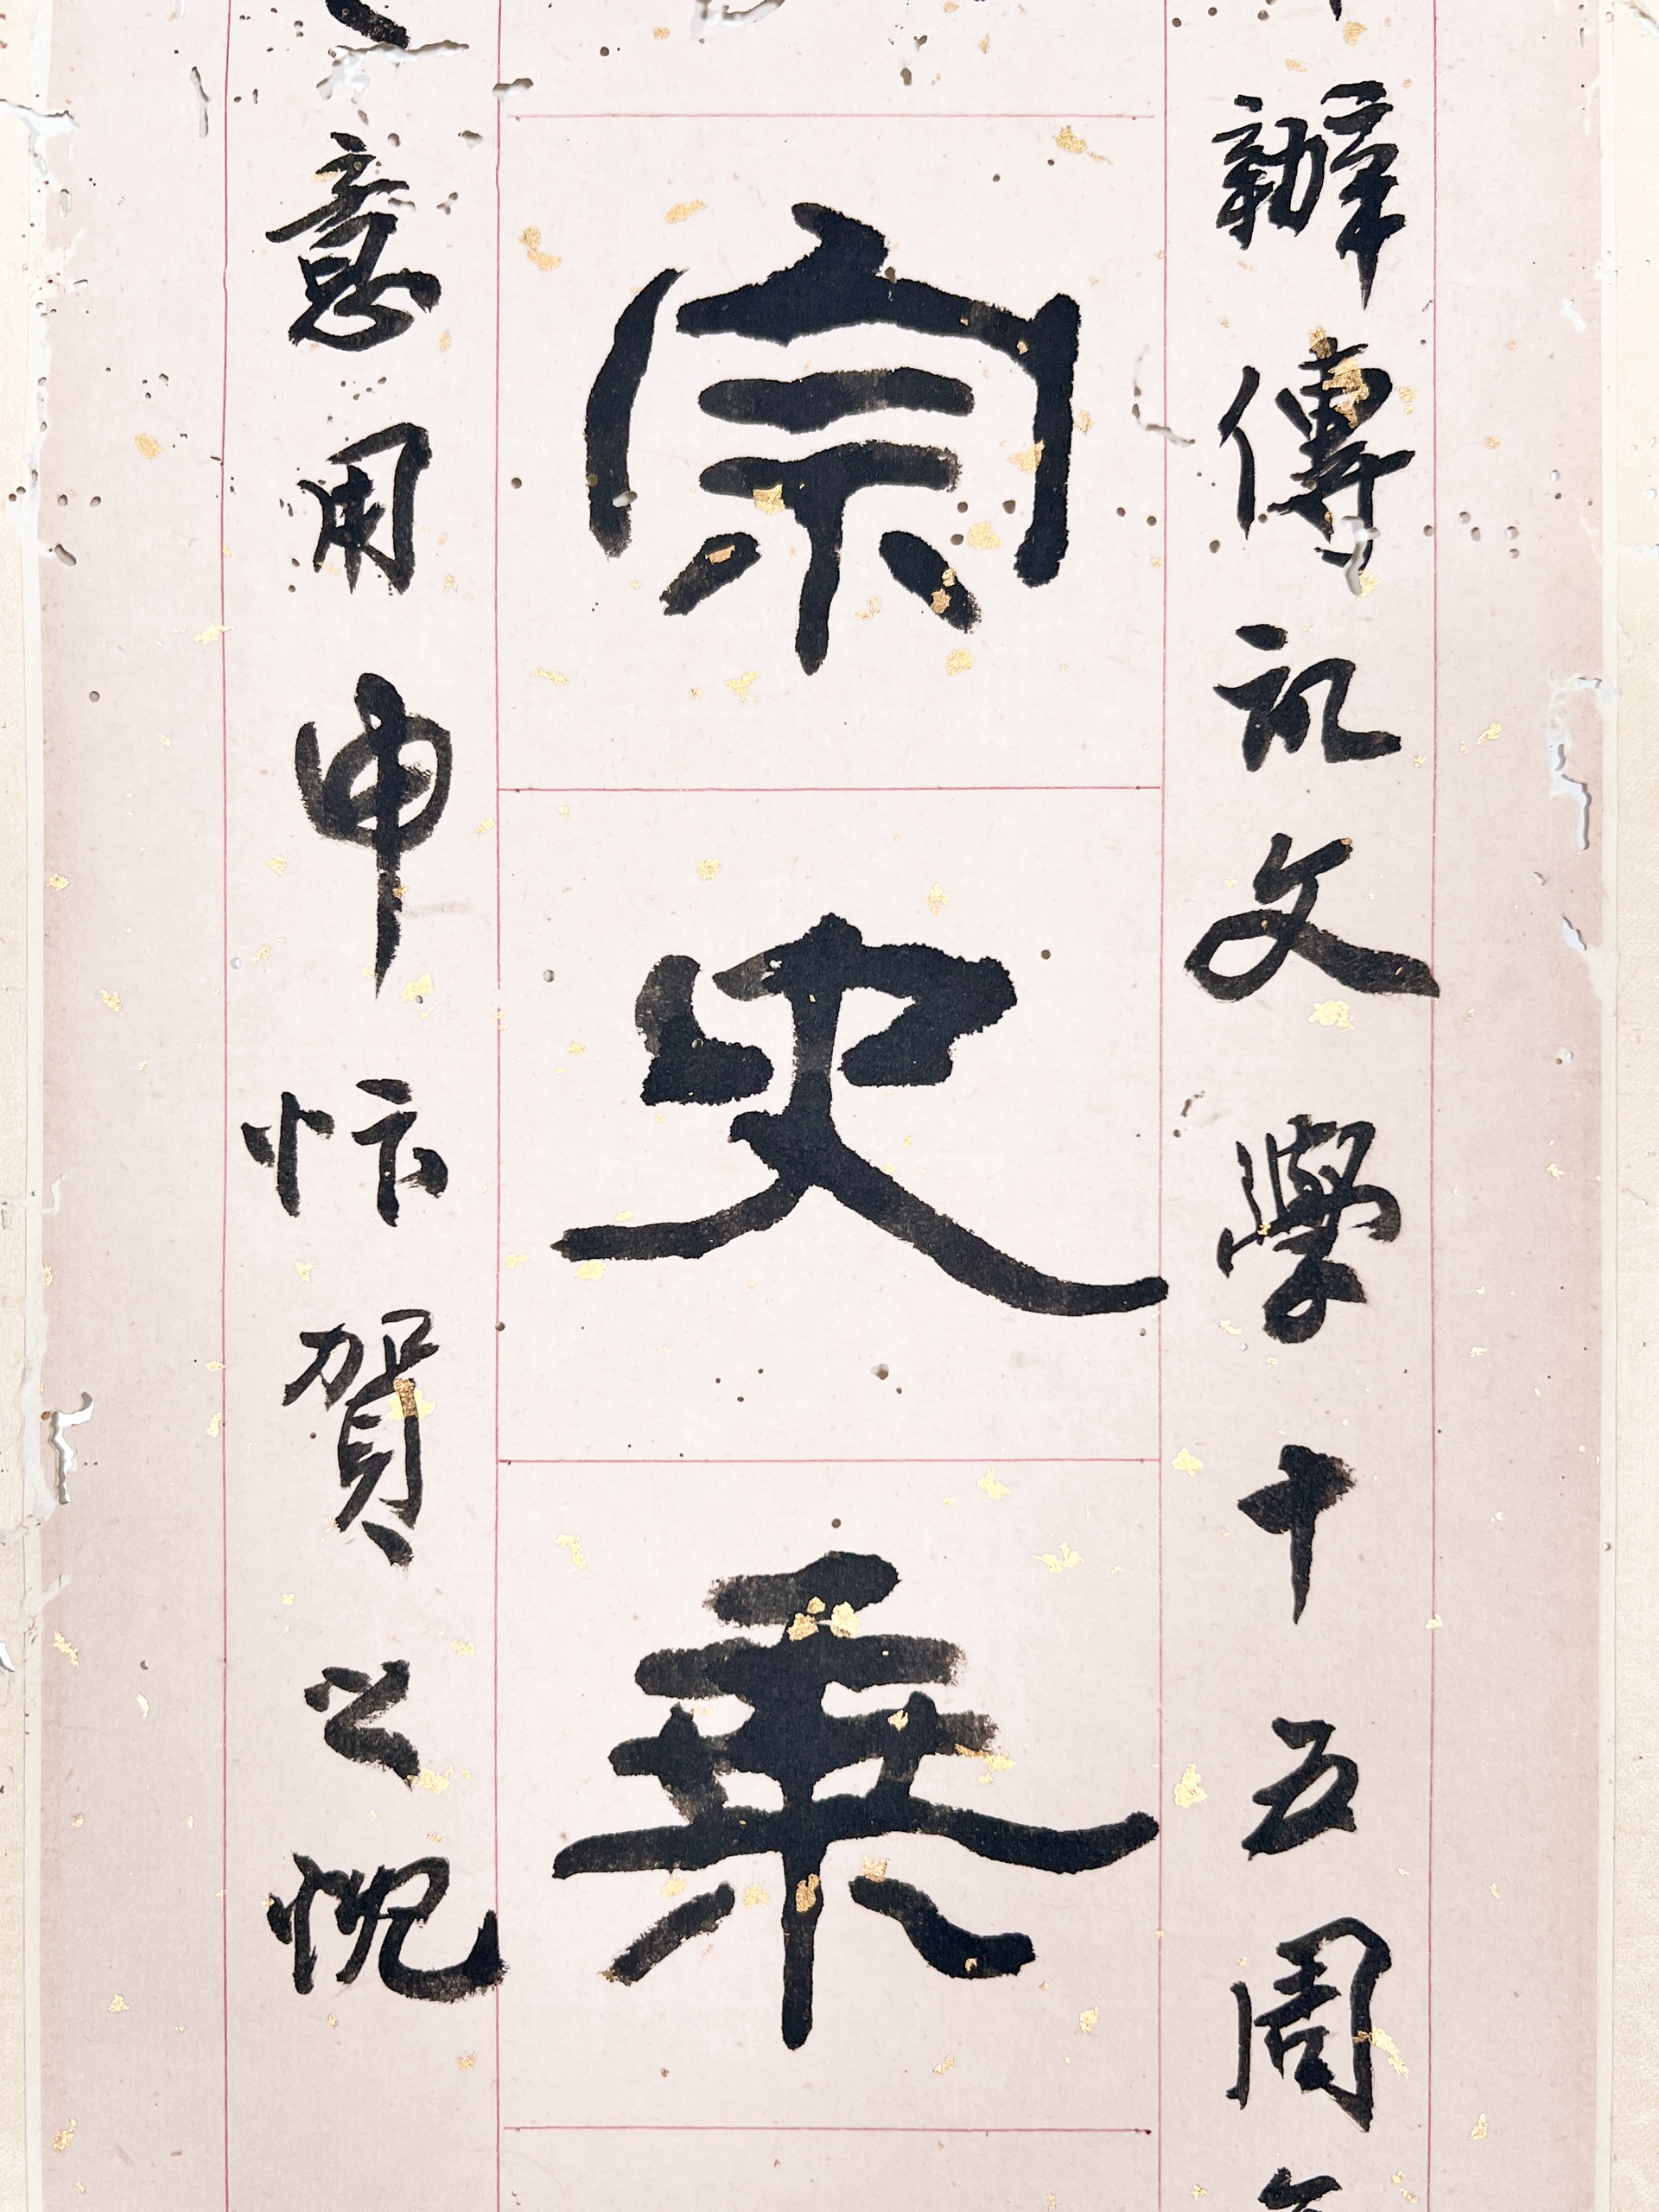 辦傳記文學十五周
宗史乘
意用申忭賀之忱